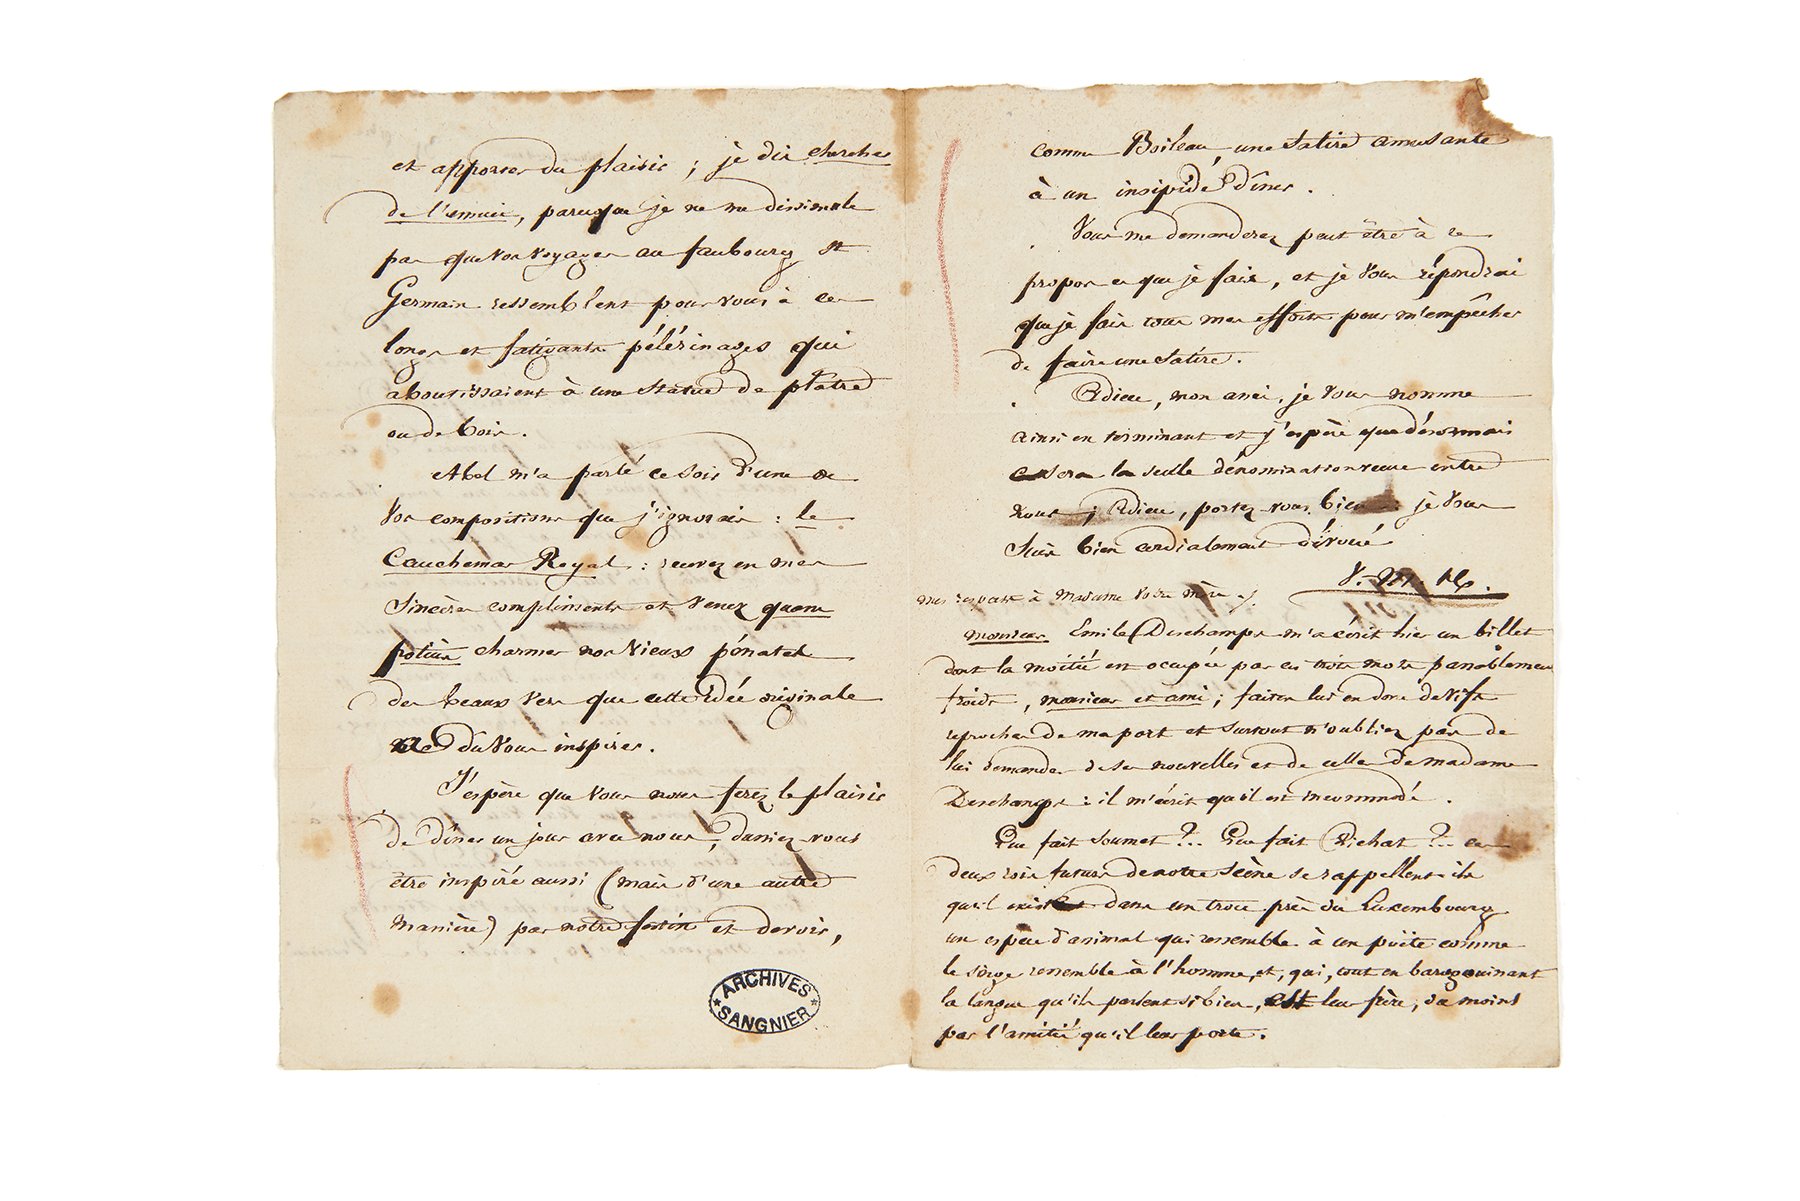 et apporter du plaisir ; je dis chercher
de l'ennui, parceque je ne me dissimule
pas que vos voyages au faubourg St
Germain ressemblent pour vous à ces
longs et fatigants pélérinages qui
aboutissaient à une statue de plâtre
ou de bois.
Abel m'a parlé ce soir d'une de
vos compositions que j'ignorais : le
Cauchemar Royal : recevez en mes
sincères compliments et venez quam
potius charmer nos vieux pénates
des beaux vers que cette idée originale
a dû vous inspirer.
J'espère que vous nous ferez le plaisir
de dîner un jour avec nous, dussiez-vous
être inspiré aussi (mais d'une autre
manière) par notre festin et devoir,
ARCHIVES
SANGNIER
comme Boileau, une satire amusante
à un insipide dîner.
Vous me demanderez peut être à ce
propos ce que je fais, et je vous répondrai
que je fais tous mes efforts pour m'empêcher
de faire une satire.
Adieu, mon ami, je vous nomme
ainsi en terminant et j'espère que désormais
ce sera la seule dénomination reçue entre
nous ; Adieu, portez-vous bien : je vous
suis bien cordialement dévoué
V.-M. H.
mes respects à Madame votre mère
monsieur Emile Deschamps m'a écrit hier un billet
dont la moitié est occupée par ces trois mots passablement
froids, monsieur et ami ; faites lui en donc de vifs
reproches de ma part et surtout n'oubliez pas de
lui demander de ses nouvelles et de celles de madame
Deschamps : il m'écrit qu'il est incommodé.
Que fait Soumet ?.. Que fait Pichat ?.. ces
deux rois futurs de notre Scène se rappellent-ils
qu'il existe dans un trou près du Luxembourg
un espèce d'animal qui ressemble à un poëte comme
le singe ressemble à l'homme, et, qui, tout en baragouinant
la langue qu'ils parlent si bien, est leur frère, du moins
par l'amitié qu'il leur porte.